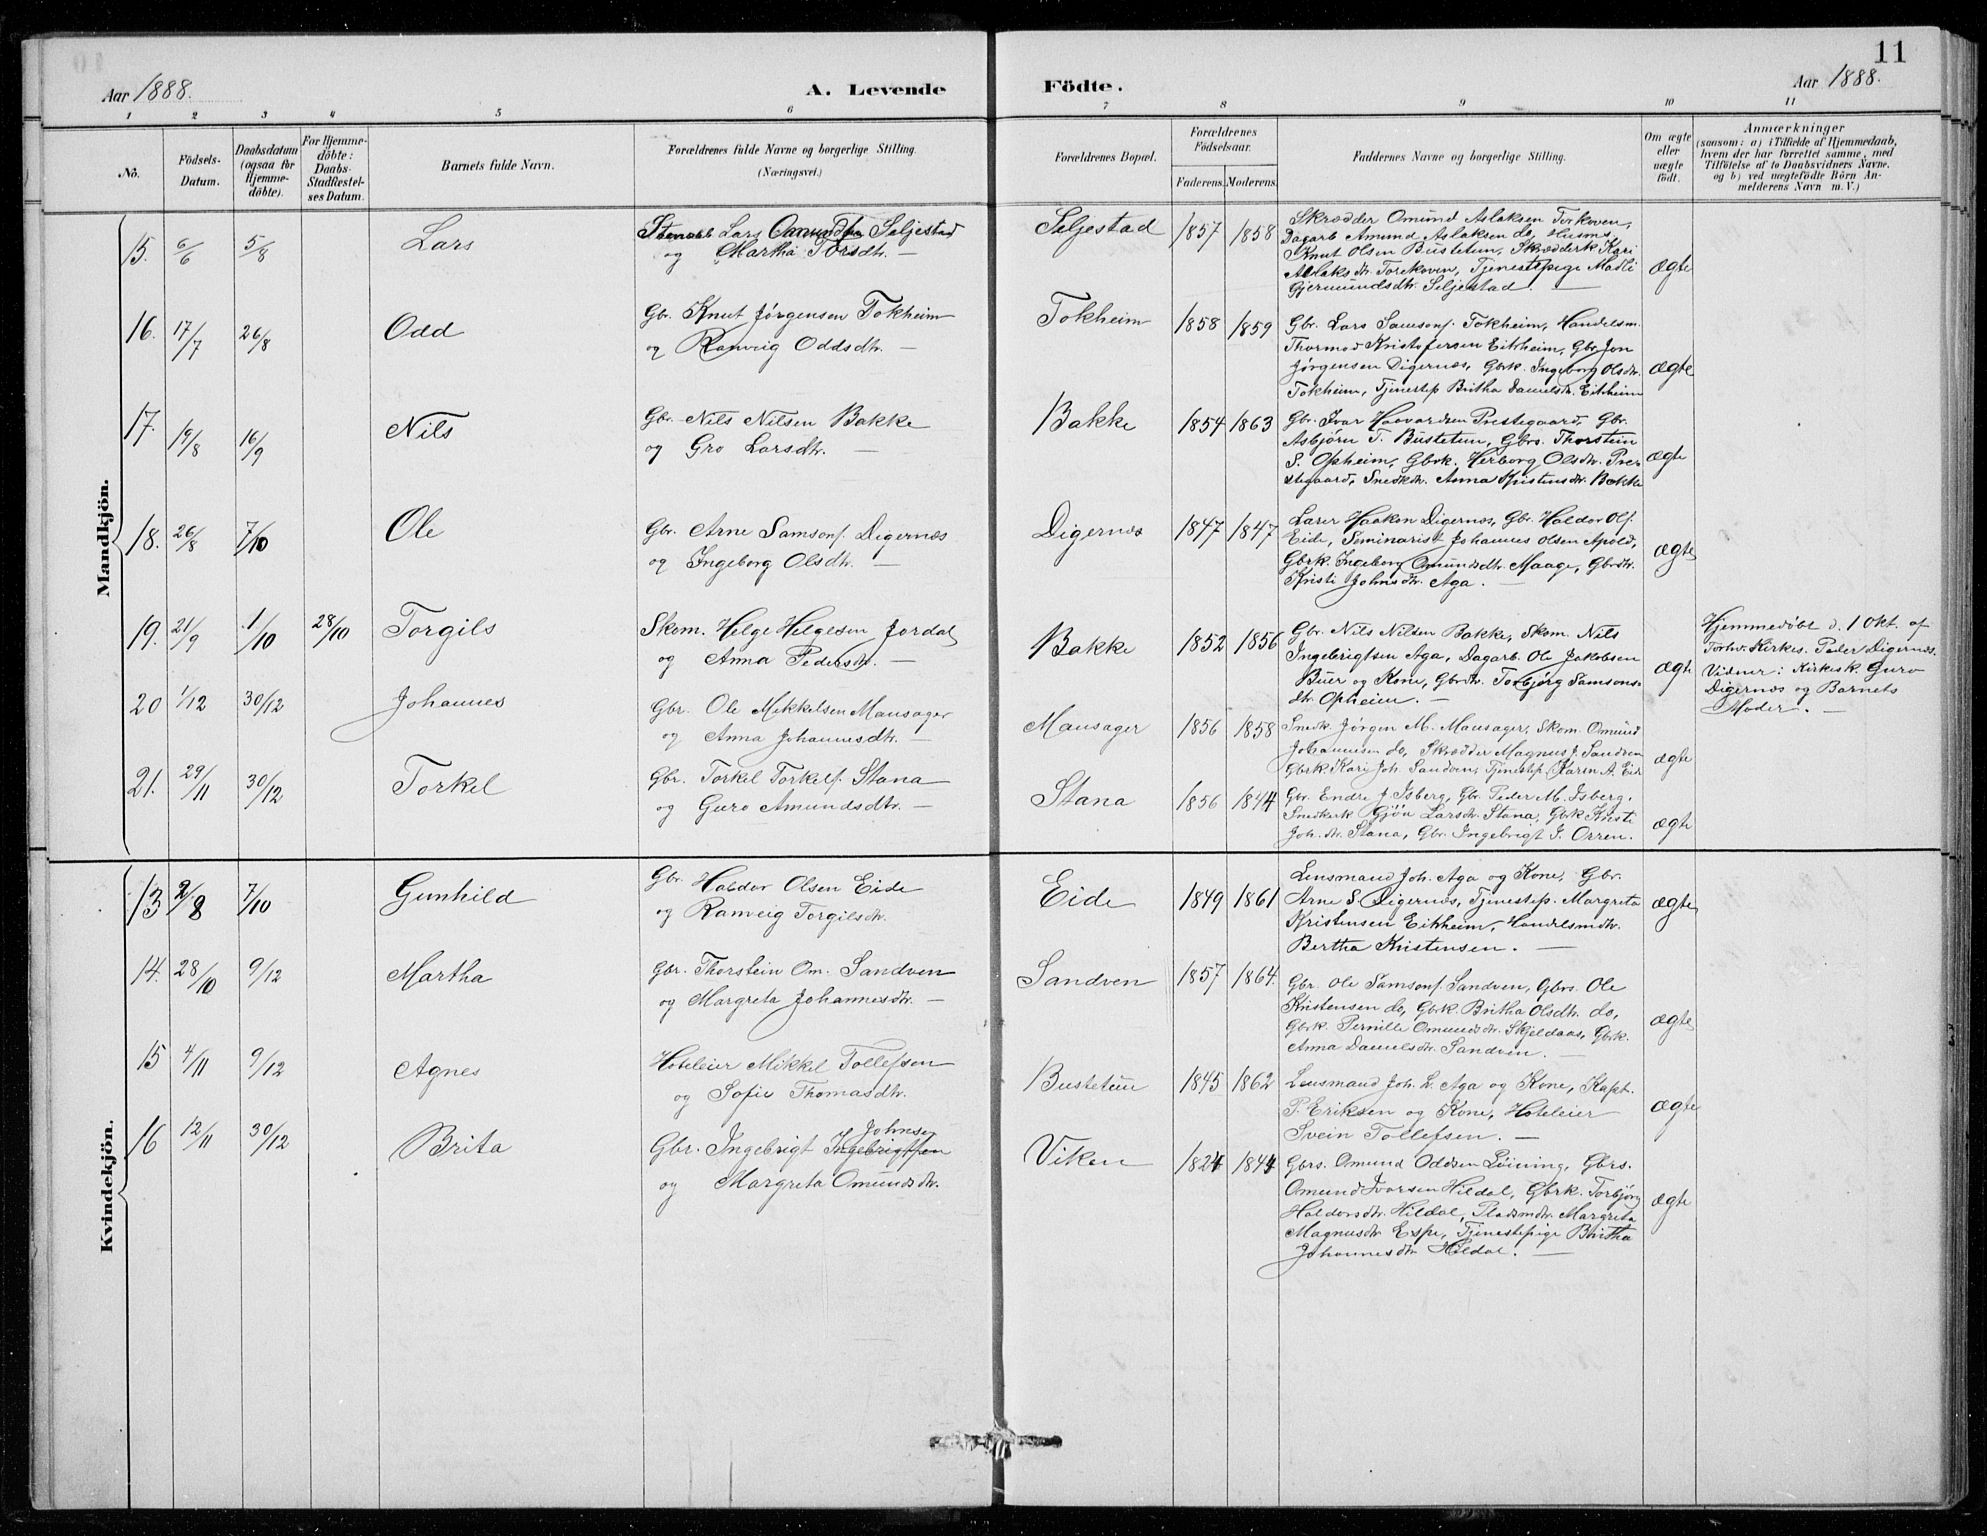 11
Aar 1888.
A. Levende
Födte.
Aar 1888.
1 2 3 4 5 6 7 8 9 10 11
No.
Födsels-
Datum.
Daabsdatum
(ogsaa for
Hjemme-
döbte).
For Hjemme-
döbte:
Daabs-
Stadfæstel-
ses Datum.
Barnets fulde Navn.
Forældrenes fulde Navne og borgerlige Stilling.
(Næringsvei.)
Forældrenes Bopæl.
Forældrenes
Födselsaar.
Faderens. Moderens.
Faddernes Navne og borgerlige Stilling.
Om ægte
eller
uægte
födt.
Anmærkninger
(saasom: a) i Tilfælde af Hjemmedaab,
hvem der har forrettet samme, med
Tilföielse af to Daabsvidners Navne.
og b) ved uægtefödte Börn An-
melderens Navn m. V.)
Mandkjön.
15. 6/6 5/8 Lars
Lars Omundsen Seljestad
og Martha Torsdtr. —
Seljestad 1857 1858
Skrædder Omund Aslaksen Torkoven,
Dagarb. Amund Aslaksen do, Husms
Knut Olsen Bustetun, Skrædderk. Kari
Aslaksdtr. Torekoven, Tjenestepige Madli
Gjermundsdtr. Seljestad. —
Ægte
16. 17/7 26/8 Odd
Gbr. Knut Jørgensen Tokheim
og Ranveig Oddsdtr. —
Tokheim 1858 1859
Gbr. Lars Samsons. Tokheim, Handelsm.
Thormod Kristofersen Eitrheim, Gbr. Jon
Jørgensen Digernæs, Gbrk. Ingeborg Olsdtr.
Tokheim, Tjenestep. Britha Danielsdtr. Eitrheim
Ægte
17. 19/8 16/9 Nils
Gbr. Nils Nilsen Bakke
og Gro Larsdtr. —
Bakke 1854 1863
Gbr. Ivar Haavardsen Prestegaard, Gbr.
Asbjörn T. Bustetun, Gbrs. Thorstein
S. Opheim, Gbrk. Herborg Olsdtr. Pres-
tegaard, Snedkdtr. Anna Kristensdtr. Bakke
Ægte
18. 26/8 7/10 Ole
Gbr. Arne Samsons. Digernæs
og Ingeborg Olsdtr. —
Digernæs 1847 1847
Lærer Haakon Digernæs, Gbr. Haldor Ols.
Eide, Seminarist Johannes Olsen Apold,
Gbrk. Ingeborg Omundsdtr. Maage, Gbrdtr.
Kristi Johnsdtr. Aga. —
Ægte
19. 21/9 1/10 28/10 Torgils
Skom. Helge Helgesen Jordal
og Anna Pedersdtr. —
Bakke 1852 1856
Gbr. Nils Nilsen Bakke, Skom. Nils
Ingebrigtsen Aga, Dagarb. Ole Jakobsen
Buer og Kone, Gbrdtr. Torbjørg Samsons-
dtr. Opheim. —
Ægte
Hjemmedøbt d. 1 Okt. af
Forhv. Kirkes. Peder Digernæs.
Vidner: Kirkesk. Guro
Digernæs og Barnets
Moder. —
20 1/12 30/12 Johannes
Gbr. Ole Mikkelsen Mansager
og Anna Johannesdtr. —
Mansager 1856 1858
Snedk. Jørgen M. Mansager, Skom. Omund
Johannesen do, Skrædder Magnus J. Sandven
Gbrk. Kari Joh. Sandven, Tjenestep. Karen A. Eide
Ægte
21. 29/11 30/12 Torkel
Gbr. Torkel Torkels. Stana
og Guro Amundsdtr. —
Stana 1856 1844
Gbr. Endre J. Isberg, Gbr. Peder M. Isberg,
Snedkerk. Gjøn Larsdtr. Stana, Gbrk. Kristi
Joh.dtr. Stana, Gbr. Ingebrigt J. Orren.
Ægte
Kvindekjön.
13 2/8 7/10 Gunhild
Gbr. Haldor Olsen Eide
og Ranveig Torgilsdtr.
Eide 1849 1861
Lensmand Joh. Aga og Kone, Gbr.
Arne S. Digernæs, Tjenestep. Margreta
Kristensen Eitrheim, Handelsmdtr.
Bertha Kristensen. —
Ægte
14. 28/10 9/12 Martha
Gbr. Thorstein Om. Sandven
og Margreta Johannesdtr. —
Sandven 1857 1864.
Gbr. Ole Samsons. Sandven, Gbrs. Ole
Kristensen do, Gbrk. Britha Olsdtr. do,
Gbrk. Pernille Omundsdtr. Skjeldaas, Gbrk.
Anna Danielsdtr. Sandven. —
Ægte
15 4/11 9/12 Agnes
Hoteleier Mikkel Tollefsen
og Sofie Thomasdtr.
Bustetun 1845 1862
Lensmand Joh. L. Aga og Kone, Kapt.
P. Eriksen og Kone, Hoteleier
Svein Tollefsen. —
Ægte
16 12/11 30/12 Brita
Johnsen
Gbr. Ingebrigt Ingebrigtsen
og Margreta Omundsdtr.
Viken 1824 1844
Gbrs. Omund Oddsen Löining, Gbrs.
Omund Ivarsen Hildal, Gbrk. Torbjørg
Haldorsdtr. Hildal, Pladsmdtr. Margreta
Magnusdtr. Espe, Tjenestepige Britha
Johannesdtr. Hildal. —
Ægte